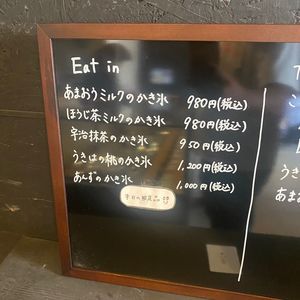 Eat in
あまおうミルクのかき氷 980円(税込)
ほうじ茶ミルクのかき氷 980円(税込)
宇治抹茶のかき氷 950円(税込)
うきはの桃のかき氷 1,200円(税込)
あんずのかき氷 1,000円(税込)
T
う
あま